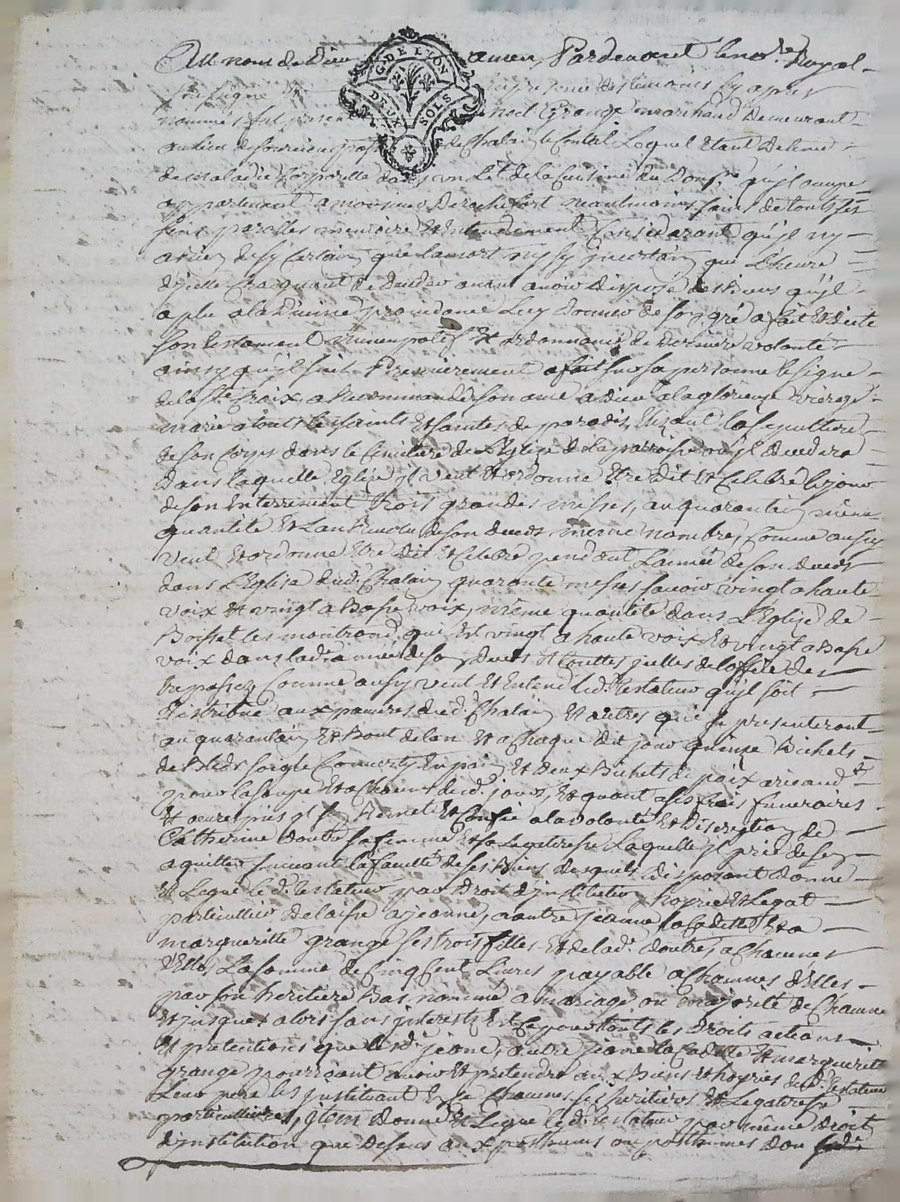 Au nom de Dieu amen, Pardevant le nore. Royal
G. DE LYON
DEUX SOLS
soussigné et presence des temoins cy apres
nommés fut present noel Grange marchand demeurant
au lieu de parroisse de Chalain le Comtal Lequel etant detenu
de maladie Corporelle dans un Lit de la Cuisine du qu'il occupe
appartenant a monsieur De Rochefort neantmoins sain de touts ses
sens parolles memoire et entendement Considerant qu'il ny
a rien de sy Certain que la mort ny sy incertain que L'heure
d'icelle Craignant de deceder avant avoir disposé des Biens qu'il
a plu a la Divine providence Luy donner de son gré a fait et dicté
son testament nuncupatif et ordonnance de derniere volonté
ainsy qu'il suit Premierement a fait sur sa personne le signe
de la Ste Croix a Recommandé son ame a Dieu a la glorieuse vierge
marie a touts les saints et saintes de paradis, Elisant la sepulture
de son Corps dans le Cimetiere de L'Eglise de La parroisse ou il decedera
Dans laquelle Eglise il veut et ordonne Etre Dit et Celebré le jour
de son Enterrement trois grandes messes, au quarantain même
quantité et L'an Revolu de son deceds même nombre, Comme aussy
veut et ordonne Etre dit et celebré pendant L'année de son deceds
dans L'Eglise dud. Chalain quarante messes savoir vingt a haute
voix et vingt a Basse voix, même quantité dans L'Eglise de
Boisset les montrond, qui Est vingt a haute voix et vingt a Basse
voix dans lad. année de son deceds et touttes jcelles de L'office des
trepassez Comme aussy veut et Entend led. testateur qu'il soit
distribué aux pauvres dud. Chalain et autres qui se presenteront
au quarantain et Bout de l'an et a Chaque dit jour quinze Bichets
de Bleds soigle Convertis En pain et deux Bichets de poix
pour la soupe et a Chacun dud. jours, Et quant a ses frais funeraires
et oeuvres pies il Remet et Confie a la volonté et discretion de
Catherine Doutre sa femme et sa Legateresse Laquelle il prie de s'en
aquitter suivant la faculté de ses Biens desquels disposant donne
et Legue le d. testateur par droit d'institution hoyrie et Legat
particullier delaissé a jeanne, a autre jeanne la Cadette et a
margueritte grange ses trois filles et de lad. doutre, a Chacunes
d'elles La somme de Cinq Cent Livres payable a Chacunes d'elles
par son heritiere Bas nommée a mariage ou majorité de Chacune
et jusques alors sans jnterests et Ce pour touts les droits actions
et pretentions que les d. jeanne, autre jeanne la Cadette et margueritte
grange pourroient avoir et pretendre aux Biens et hoyries dud. testateur
Leur pere les jnstituant En Ce Chacunes ses heritieres et Legateresses
particullieres, jtem donne et Legue led. testateur par même droit
d'institution que dessus aux posthumes ou posthumes dont